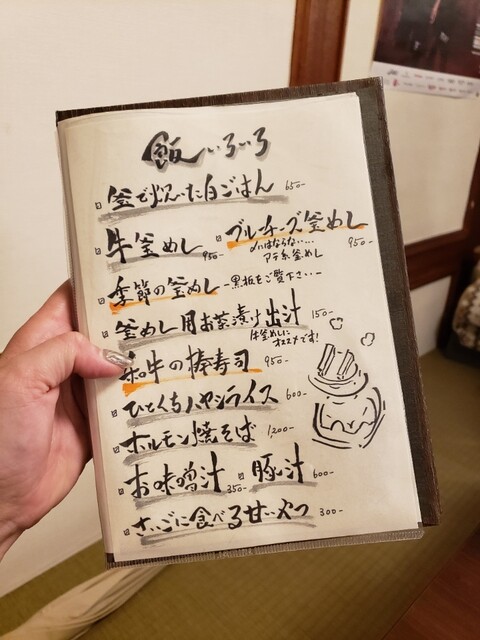 飯いろいろ
釜で炊いた白ごはん 650-
牛釜めし 950-
ブルーチーズ釜めし 950-
〆にはならない…
アテ系釜めし
季節の釜めし -黒板をご覧下さい-
釜めし用お茶漬け出汁 150-
牛釜めしに
オススメです!
和牛の棒寿司 950-
ひとくちハヤシライス 600-
ホルモン焼そば 1,200-
お味噌汁 350- 豚汁 600-
さいごに食べる甘いやつ 300-